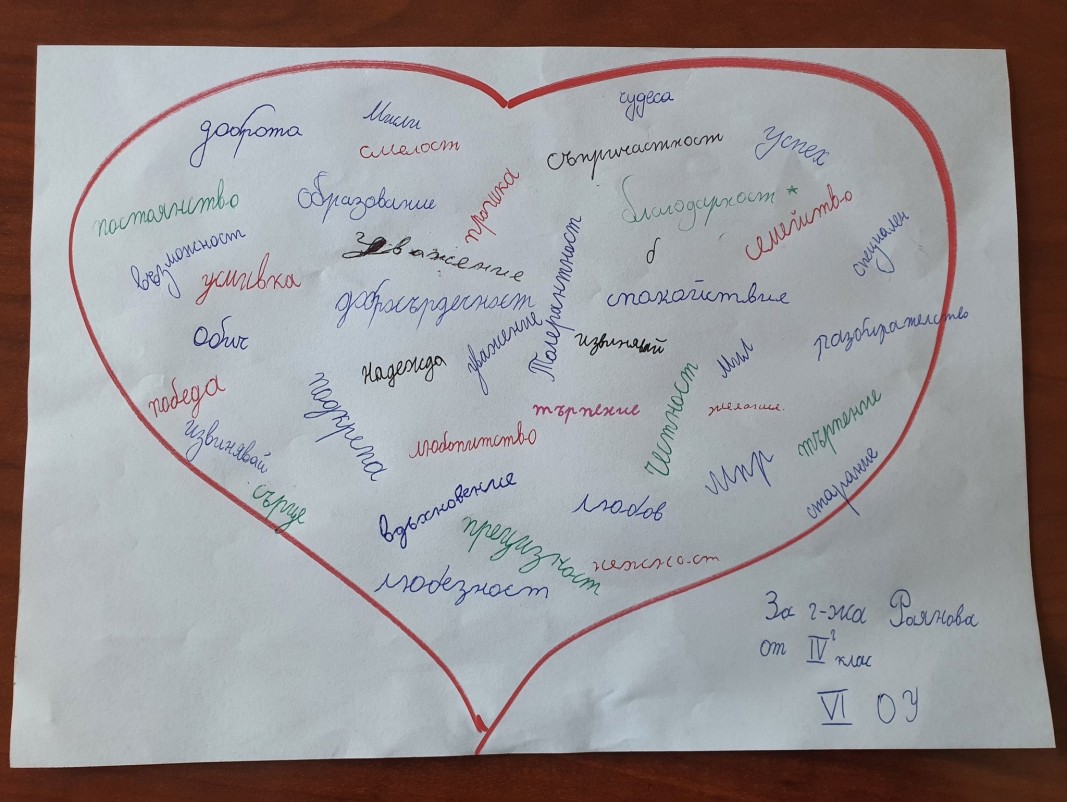 доброта
Мисли
чудеса
смелост
съпричастност
Успех
постоянство
Образование
прошка
благодарност *
семейство
възможност
усмивка
Уважение
б
специален
добросърдечност
Толерантност
спокойствие
Обич
Надежда
уважение
извинявай
Мил
разбирателство
победа
подкрепа
търпение
честност
желание.
извинявай
любопитство
търпение
сърце
вдъхновение
любов
Мир
старание
прецизност
нежност
любезност
За г-жа Раянова
от IVг клас
VI ОУ